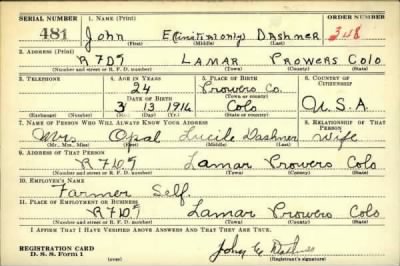 SERIAL NUMBER 1. NAME (Print) ORDER NUMBER
481 John E(initial only) Dashner 348
(First) (Middle) (Last)
2. ADDRESS (Print)
R F D 1 Lamar Prowers Colo
(Number and street or R. F. D. number) (Town) (County) (State)
3. TELEPHONE 4. AGE IN YEARS 5. PLACE OF BIRTH 6. COUNTRY OF CITIZENSHIP
24 Prowers Co.
DATE OF BIRTH (Town or county)
3 13 1916 Colo U.S.A.
(Exchange) (Number) (Mo.) (Day) (Yr.) (State or country)
7. NAME OF PERSON WHO WILL ALWAYS KNOW YOUR ADDRESS 8. RELATIONSHIP OF THAT PERSON
Mrs Opal Lucile Dashner Wife
(Mr., Mrs., Miss) (First) (Middle) (Last)
9. ADDRESS OF THAT PERSON
Lamar Prowers Colo
(Number and street or R. F. D. number) (Town) (County) (State)
10. EMPLOYER'S NAME
Farmer Self.
11. PLACE OF EMPLOYMENT OR BUSINESS
Lamar Prowers Colo
(Number and street or R. F. D. number) (Town) (County) (State)
I AFFIRM THAT I HAVE VERIFIED ABOVE ANSWERS AND THAT THEY ARE TRUE.
REGISTRATION CARD
D. S. S. Form 1 (over) (Registrant's signature)
John E